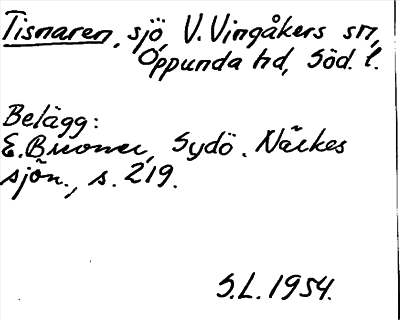 Tisnaren, sjö, V. Vingåkers sn,
Oppunda hd, Söd. l.
Belägg:
E. Bromer, Sydö. Närkes
sjön., s. 219.
S.L. 1954.